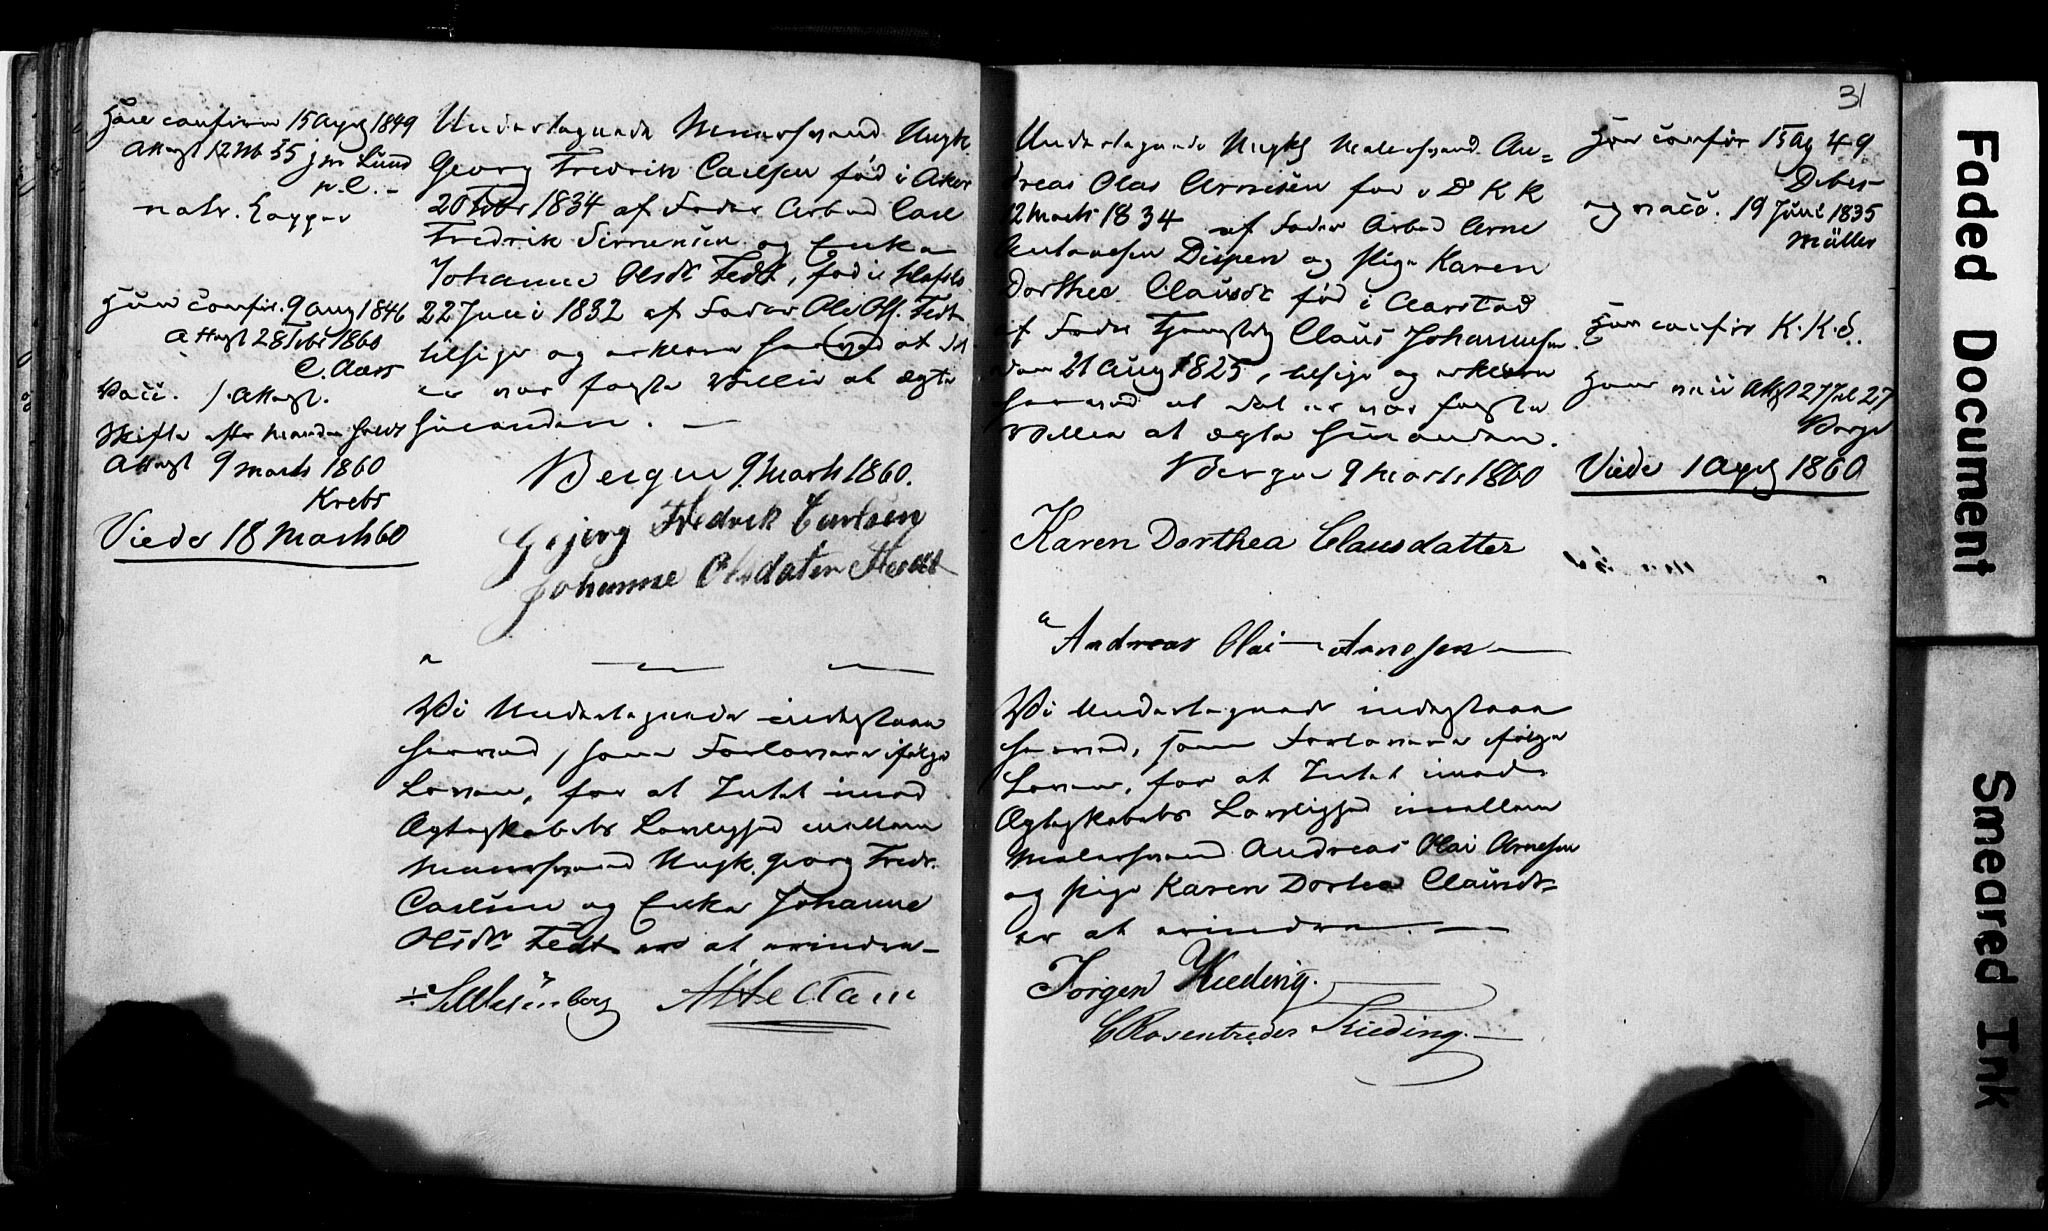 Han confirm 15 Apr 1849
Attest 12 35 Lund
p. C. –
natr. Kopper
Hun confir. 9 Aug 1846
Attest 28 Febr 1860
C. Aars
Vacc. s. Attest.
Skifte efter hendes
Attest 9 Marts 1860
Krebs
Viede 18 Marts 60
Undertegnede Ungk.
Georg Fredrik Carlsen fød i Asker
20 Febr 1834 af Fader Arbed Carl
Fredrik og Enke
Johanne Olsdt Tedt, fød i
22 Juni 1832 af Fader Ole Ols. Tedt
tilsige og erklære herved at det
er vor faste Villie at ægte
hinanden. –
Bergen 9 Marts 1860.
Gejorg Fredrek Carlsen
Johanne Olsdaten
Vi Undertegnede indestaaer
herved, som Forlovere ifølge
Loven, for at Intet imod
Ægteskabets Lovlighed mellem
Ungk. Georg Fredr.
Carlsen og Enke Johanne
Olsdtr Tedt er at erindre –
31
Undertegnede Ungk Malersvend An=
dreas Olai Arnesen fød i D K K
12 Marts 1834 af Fader Arbed Arne
Antonesen og Pige Karen
Dorthea Clausdt fød i Aarstad
af Fader Claus Johannesen
den 21 Aug 1825, tilsige og erklære
herved at det er vor faste
Villie at ægte hinanden.
Bergen 9 Marts 1860
Karen Dorthea Clausdatter
Andreas Olai Arnesen
Vi Undertegnede indestaaer
herved, som Forlovere ifølge
Loven, for at Intet imod
Ægteskabets Lovlighed imellem
Malersvend Andreas Olai Arnesen
og Pige Karen Dortea Clausdt
er at erindre
Jörgen Kieding.
C Rosentreder Kieding.
Han confir 15 Ap 49
Debes
og vacc. 19 Juni 1835
Müller
Hun confir K. K. S.
Hun vacc Attst 27 Jul 27
Viede 1 Apr 1860
Faded Document
Smeared Ink